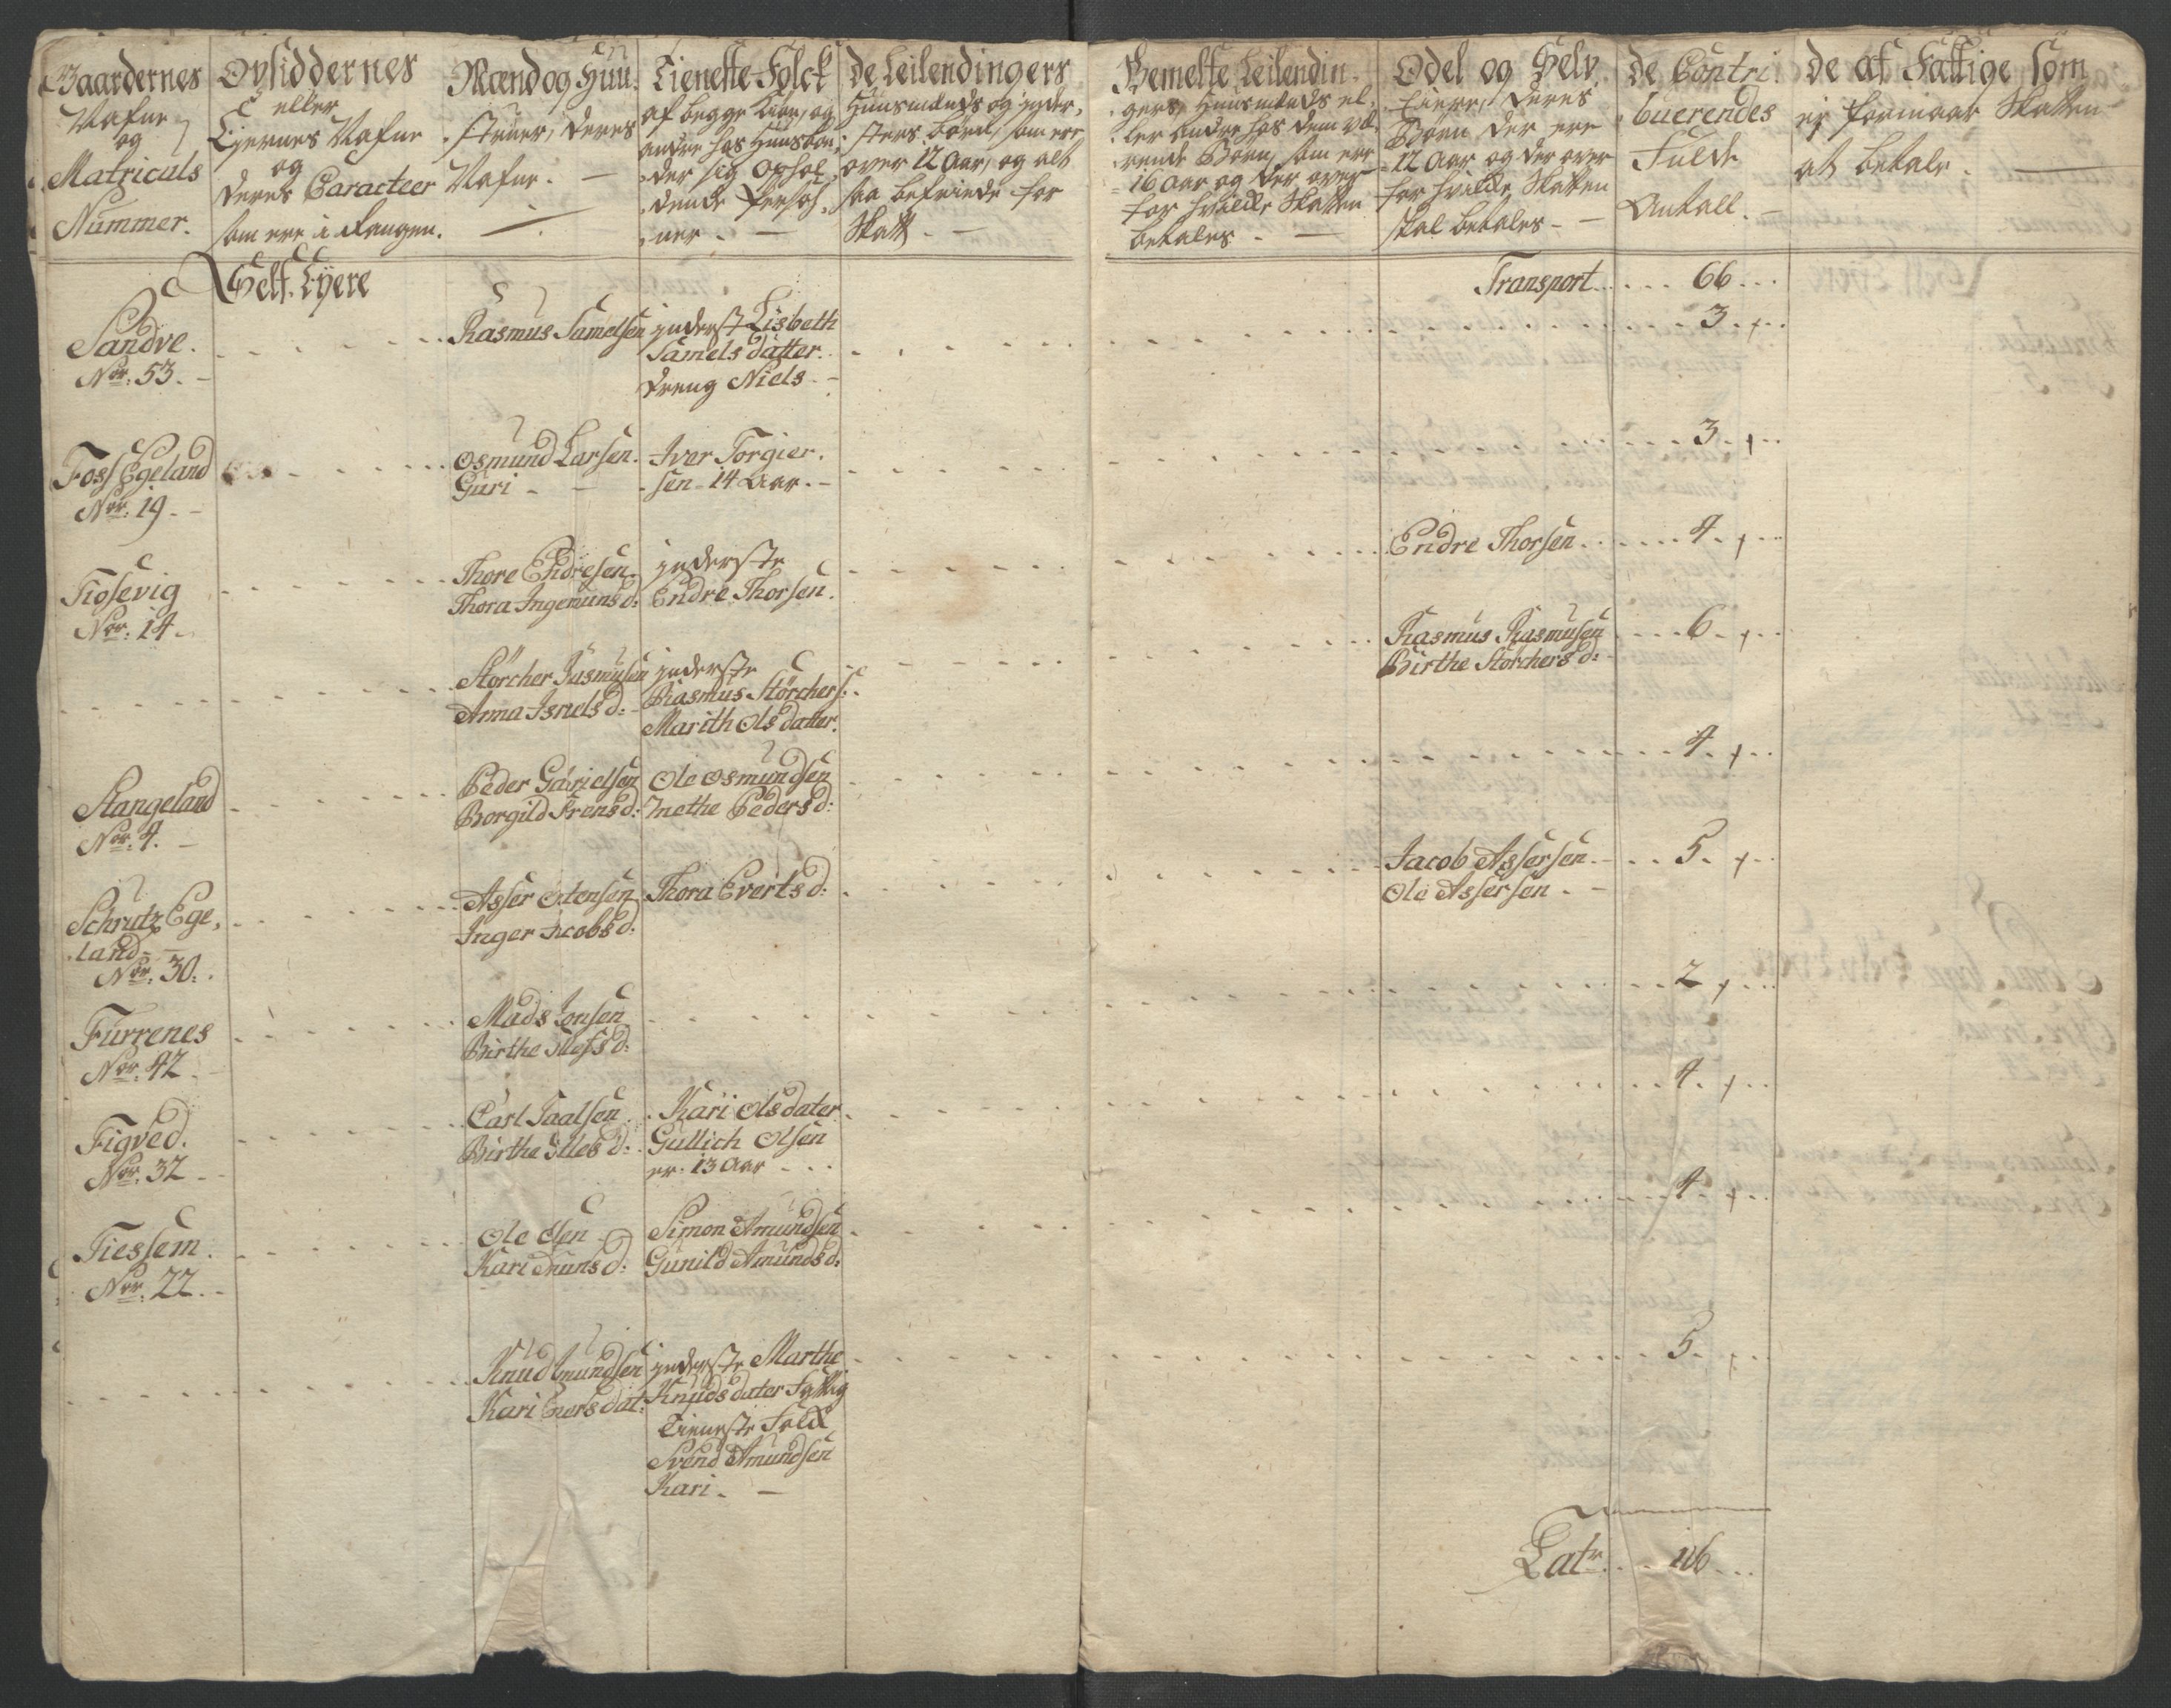 Gaardernes
Nafne
og
Matriculs
Nummer.
Opsiddernes
eller
Ejernes Nafne
og
deres Caracteer
som ere i Rangen.
Mænd og Huu-
struer, deres
Nafne. —
Tieneste-Folck
af begge Kiøn, og
andre hos Huusbon-
der sig ophol-
dende Perso-
ner. —
De Leilendingers
Huusmænds og inder-
sters børn, som ere
over 12 Aar, og alt
saa befriede for
Skatt. —
Bemelte Leilendin-
gers, Huusmænds el-
ler andre hos dem væ-
rende Børn, som ere
16 Aar og der over
for hvilcke Skatten
betales. —
Odel og Selv
Eiere, deres
Børn der ere
12 Aar og der over
for hvilcke Skatten
skal betales —
de Contri
buerendes
Fulde
Antall. —
de af Fattige som
ej formaar Skatten
at betale. —
Self. Eyere
Transport . . . . 66 . . .
Sandve.
No. 53. —
Rasmus Samelsen
inderst Lisbeth
Samels datter.
dreng Niels. —
3.
Foss Egeland
No. 19. —
Osmund Larsen.
Guri — —
Iver Torgier-
sen — 14 Aar. —
3.
Fiosevig
No. 14.
Thore Endresen.
Thora Ingemunsd:
inderste
Endre Thorsen.
Endre Thorsen.
4.
Störcher Rasmusen
Anna Israelsd: —
inderste
Rasmus Störchers:
Marith Olsdatter.
Rasmus Rasmusen
Birthe Störchersd:
6.
Stangeland
No. 4. —
Peder Gabrielsen
Borgild
Ole Osmundsen
Pedersd:
4.
Schrutz Ege-
land —
No. 30.
Asser Ostensen
Inger Jacobsd:
Thora Evertsd:
Jacob Assersen.
Ole Assersen. —
5.
Furrenes
No. 42.
Mads Jonsen
Birthe
2.
Figved.
No. 32.
Carl Paalsen.
Birthe
Kari Olsdater.
Gullich Olsen
er: 13 Aar . . .
4.
Fiessem.
No. 22. —
Ole Olsen
Kari
Simon Amundsen
Gunild Amundsd:
4.
Knud Amundsen
Kari
inderste Marthe
Knudsdater Fattig
Tieneste Folck
Svend Amundsen
Kari. —
5.
Latr. . . 106 . . .